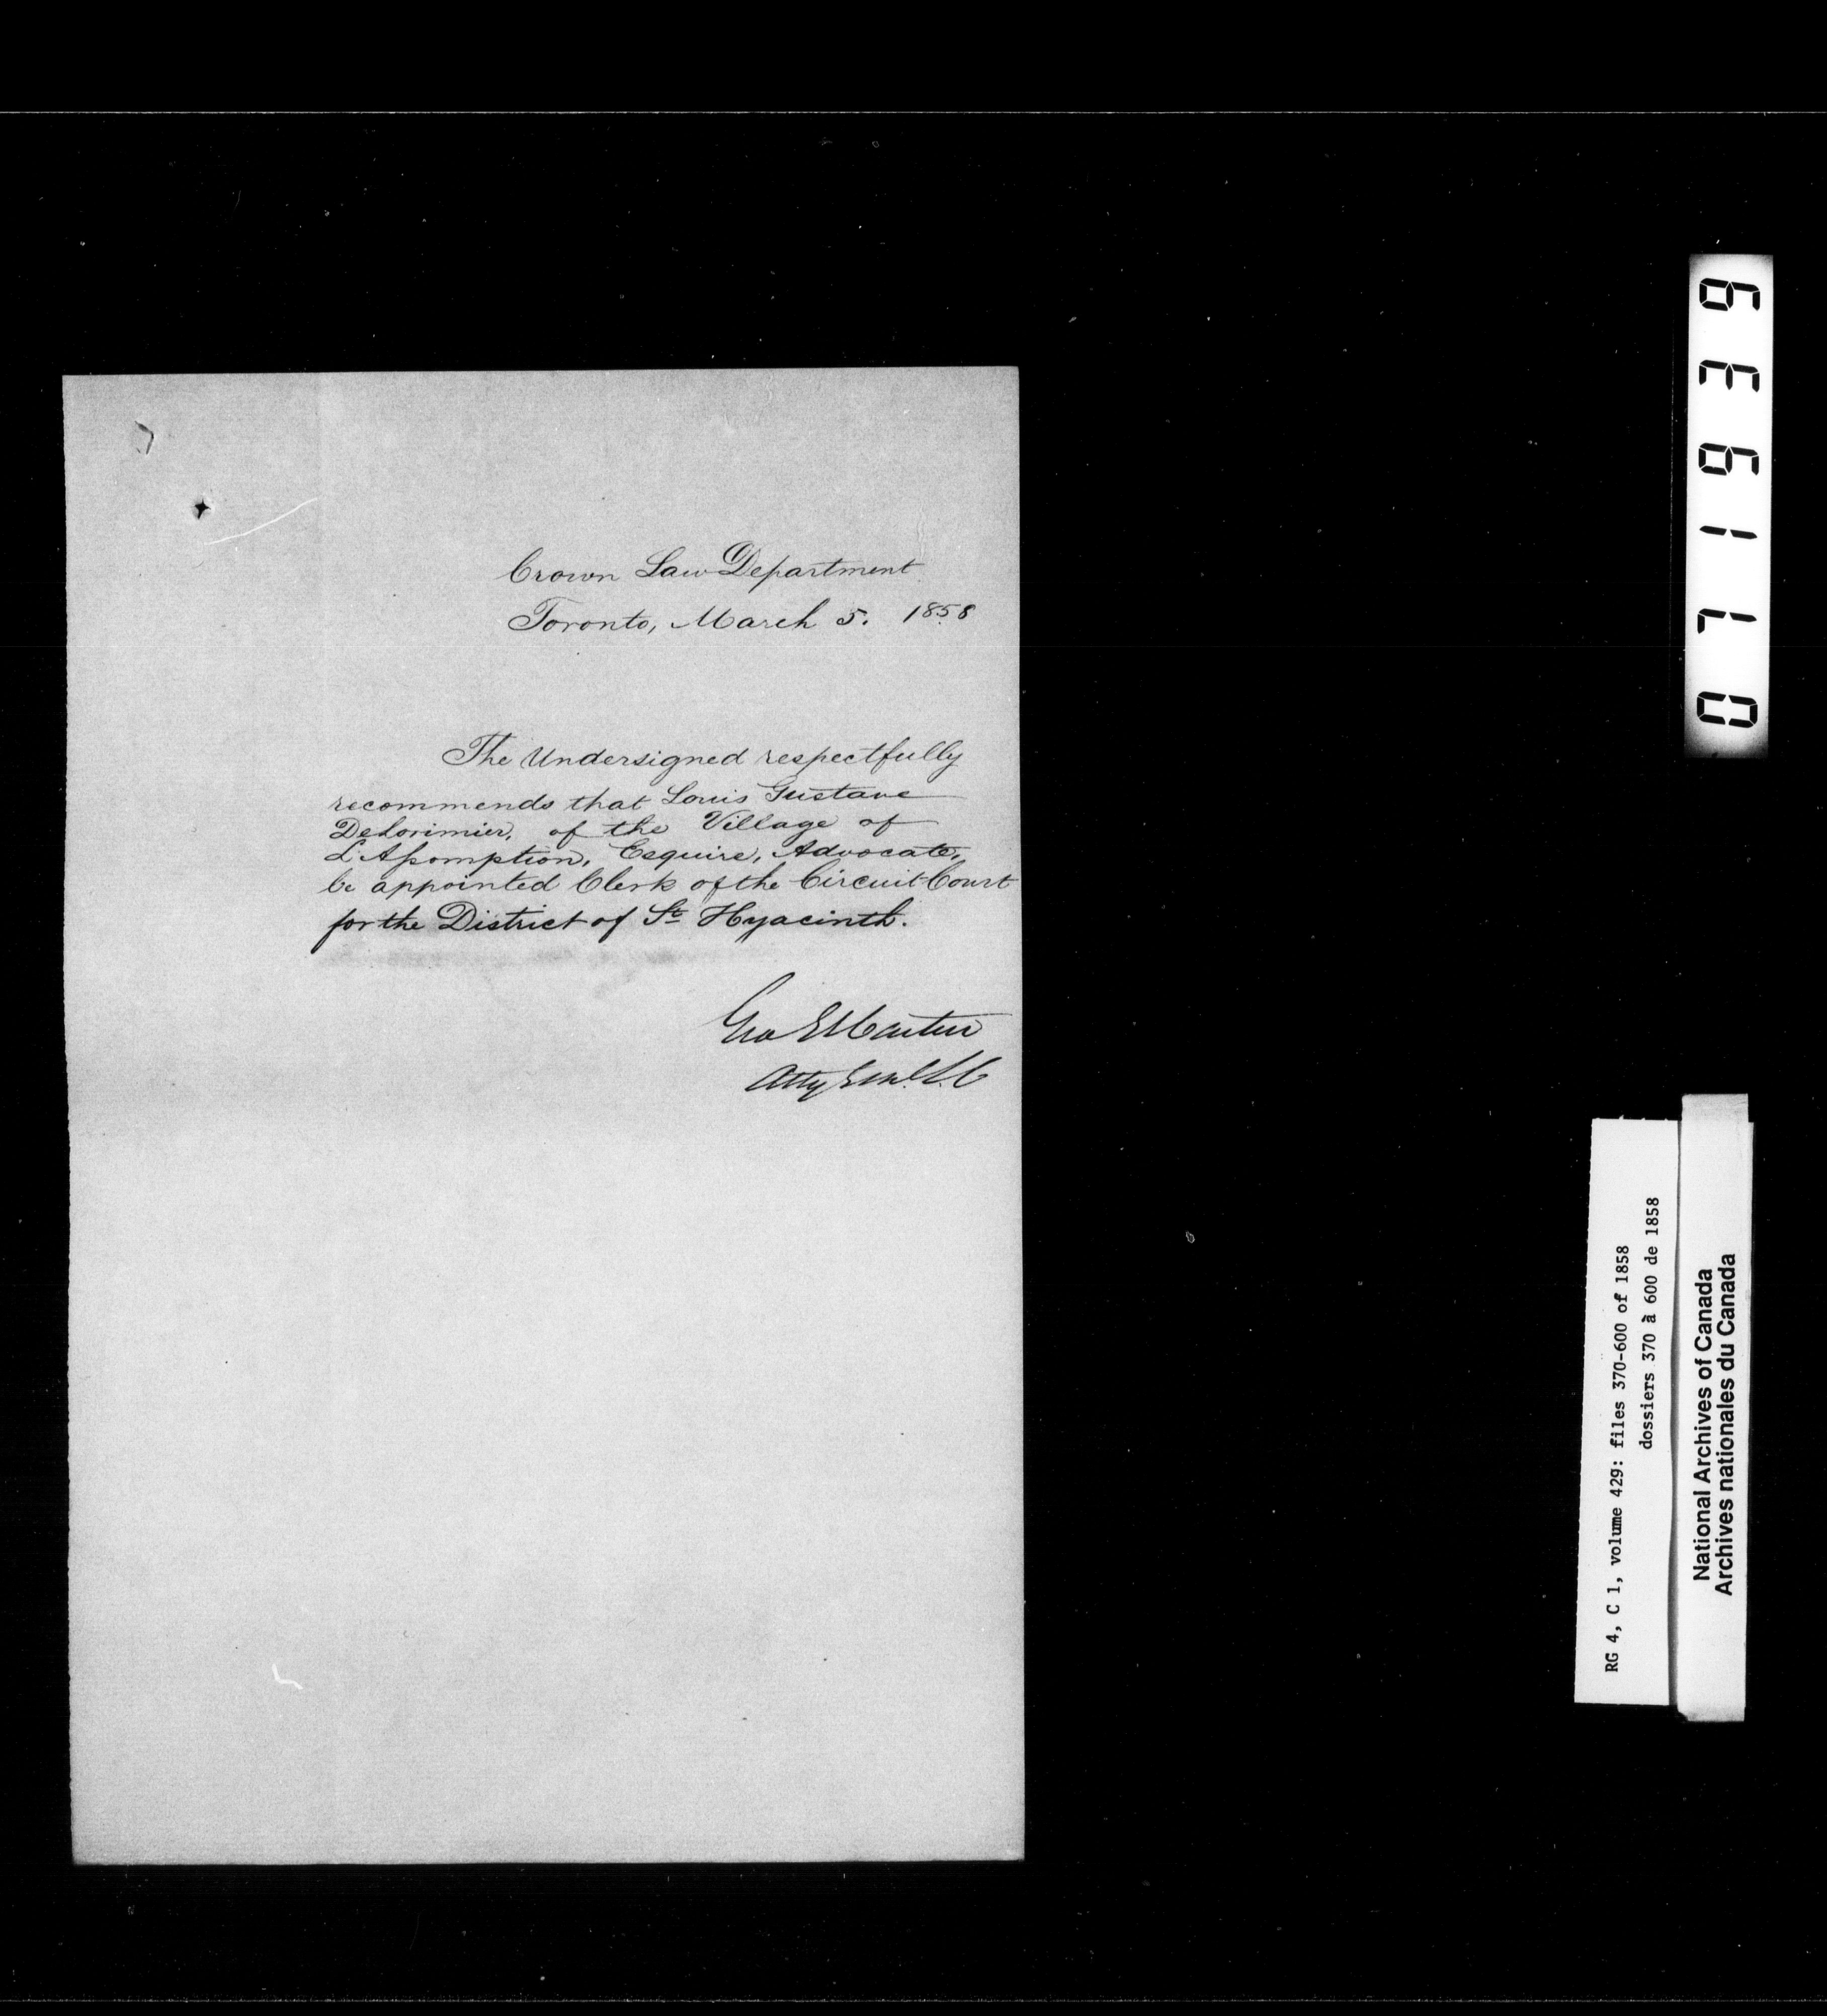 Crown Law Department
Toronto, March 5. 1858
The Undersigned respectfully
recommends that Louis Gustave
DeLorimier, of the Village of
L'Assomption, Esquire, Advocate,
be appointed Clerk of the Circuit Court
for the District of St Hyacinth.
Geo E Cartier
Atty Genl. L. C
071939
RG 4, C 1, volume 429: files 370-600 of 1858
dossiers 370 à 600 de 1858
National Archives of Canada
Archives nationales du Canada